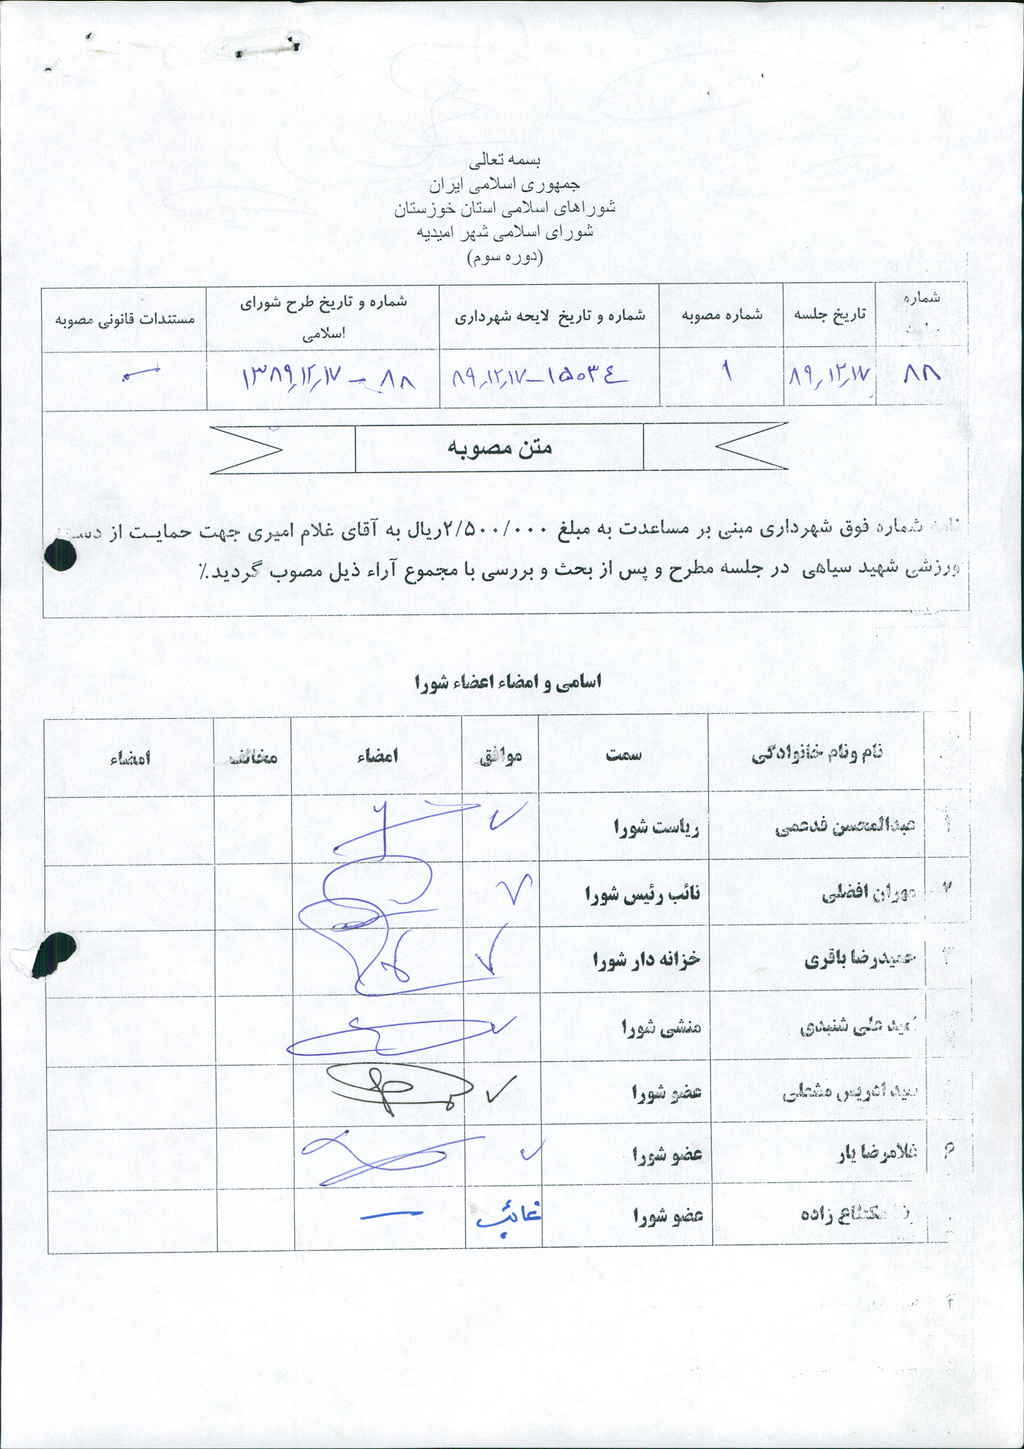 بسمه تعالی
جمهوری اسلامی ایران
شوراهای اسلامی استان خوزستان
شورای اسلامی شهر امیدیه
(دوره سوم)
شماره | تاریخ جلسه | شماره مصوبه | شماره و تاریخ لایحه شهرداری | شماره و تاریخ طرح شورای اسلامی | مستندات قانونی مصوبه
۸۸ | ۸۹,۱۲,۱۷ | ۱ | ۸۹,۱۲,۱۷-۱۵۰۳٤ | ۱۳۸۹,۱۲,۱۷ - ۸۸ | -
متن مصوبه
شماره فوق شهرداری مبنی بر مساعدت به مبلغ ۲/۵۰۰/۰۰۰ریال به آقای غلام امیری جهت حمایت از
ورزشی شهید سیاهی در جلسه مطرح و پس از بحث و بررسی با مجموع آراء ذیل مصوب گردید.٪
اسامی و امضاء اعضاء شورا
نام ونام خانوادگی | سمت | موافق | امضاء | مخالف | امضاء
عبدالمحسن قدعمی | ریاست شورا | ✓
۲ | مهران افضلی | نائب رئیس شورا | ✓
۳ | حمیدرضا باقری | خزانه دار شورا | ✓
علی شنبدی | منشی شورا | ✓
سید ادریس مشعلی | عضو شورا | ✓
غلامرضا یار | عضو شورا | ✓
زاده | عضو شورا | غائب | —